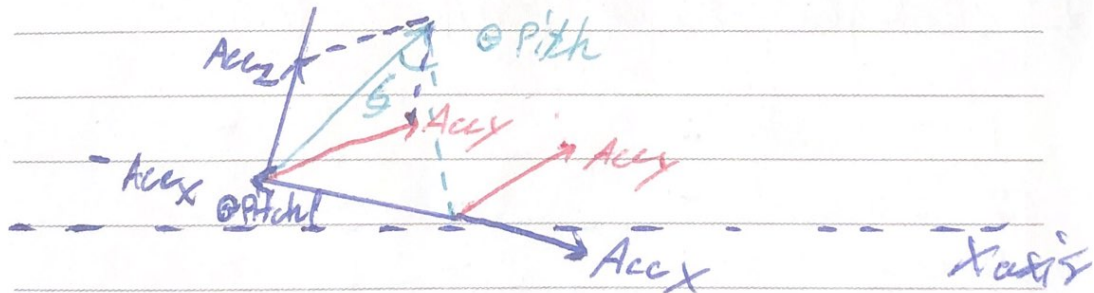 Accz
θ Pitch
S
Accy
Accy
- Accx
θPitch
Accx
X axis